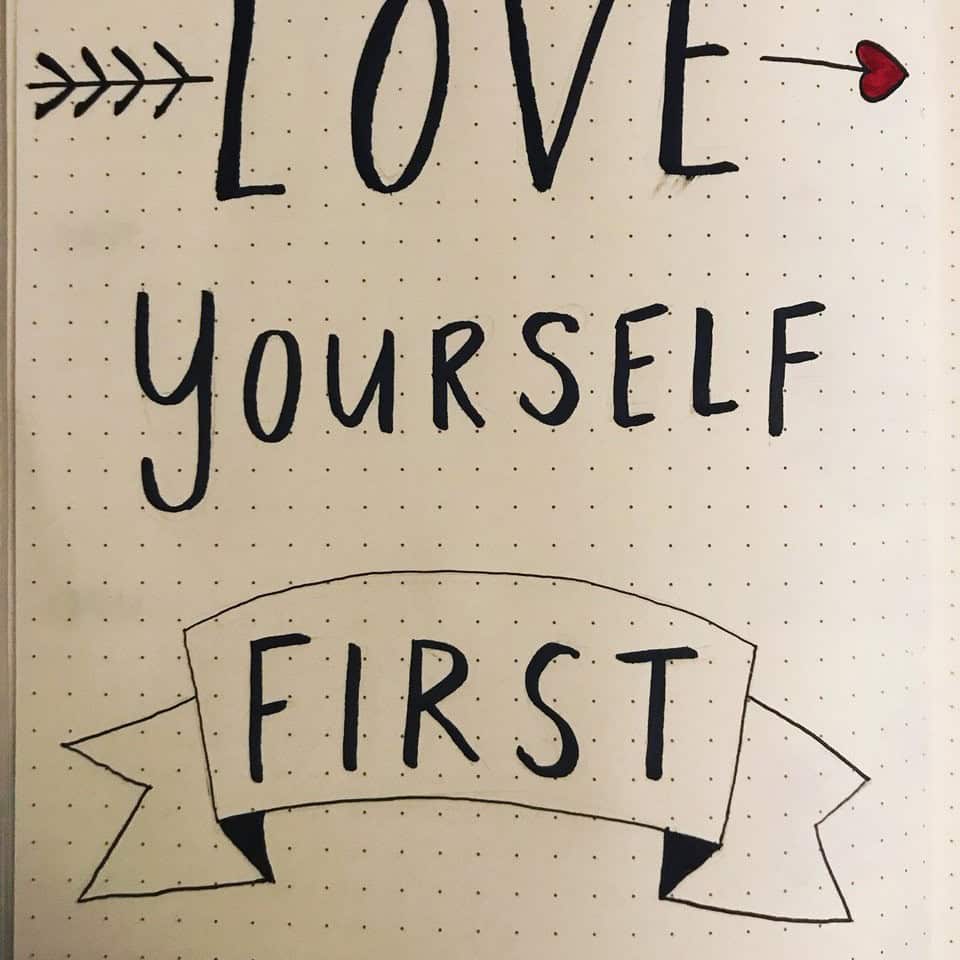 LOVE
yOURSELF
FIRST